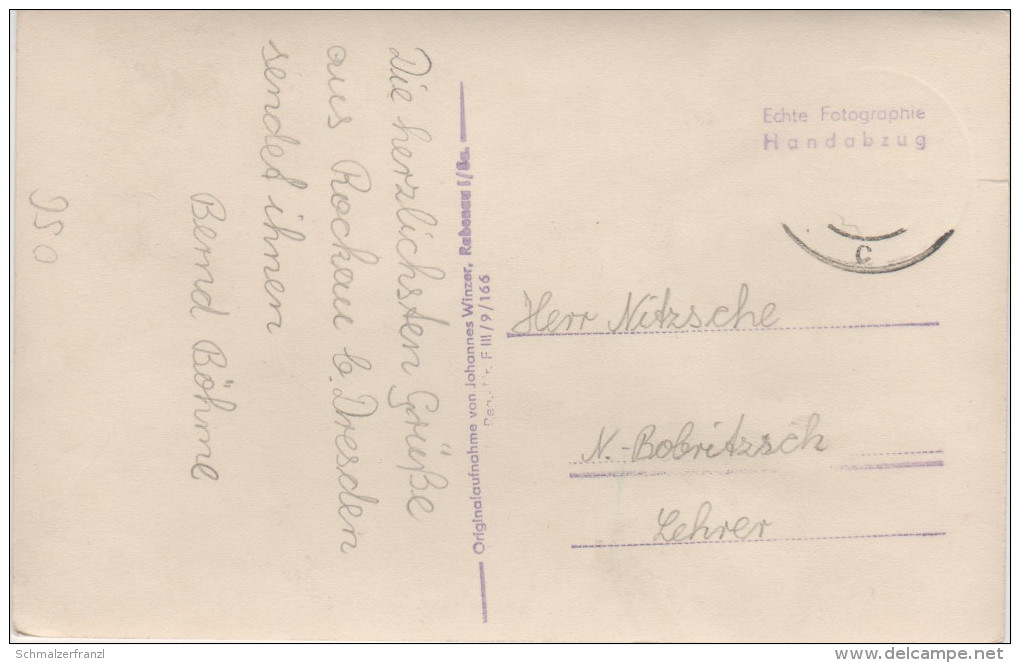 Die herzlichsten Grüße
aus Rockau b. Dresden
sendet ihnen
Bernd Böhme
950
Originalaufnahme von Johannes Winzer, Rabenau i/Sa.
F III/9/166
Echte Fotographie
Handabzug
C
Herr Nitzsche
N.-Bobritzsch
Lehrer
Schmalzerfranzl
delcampe.net